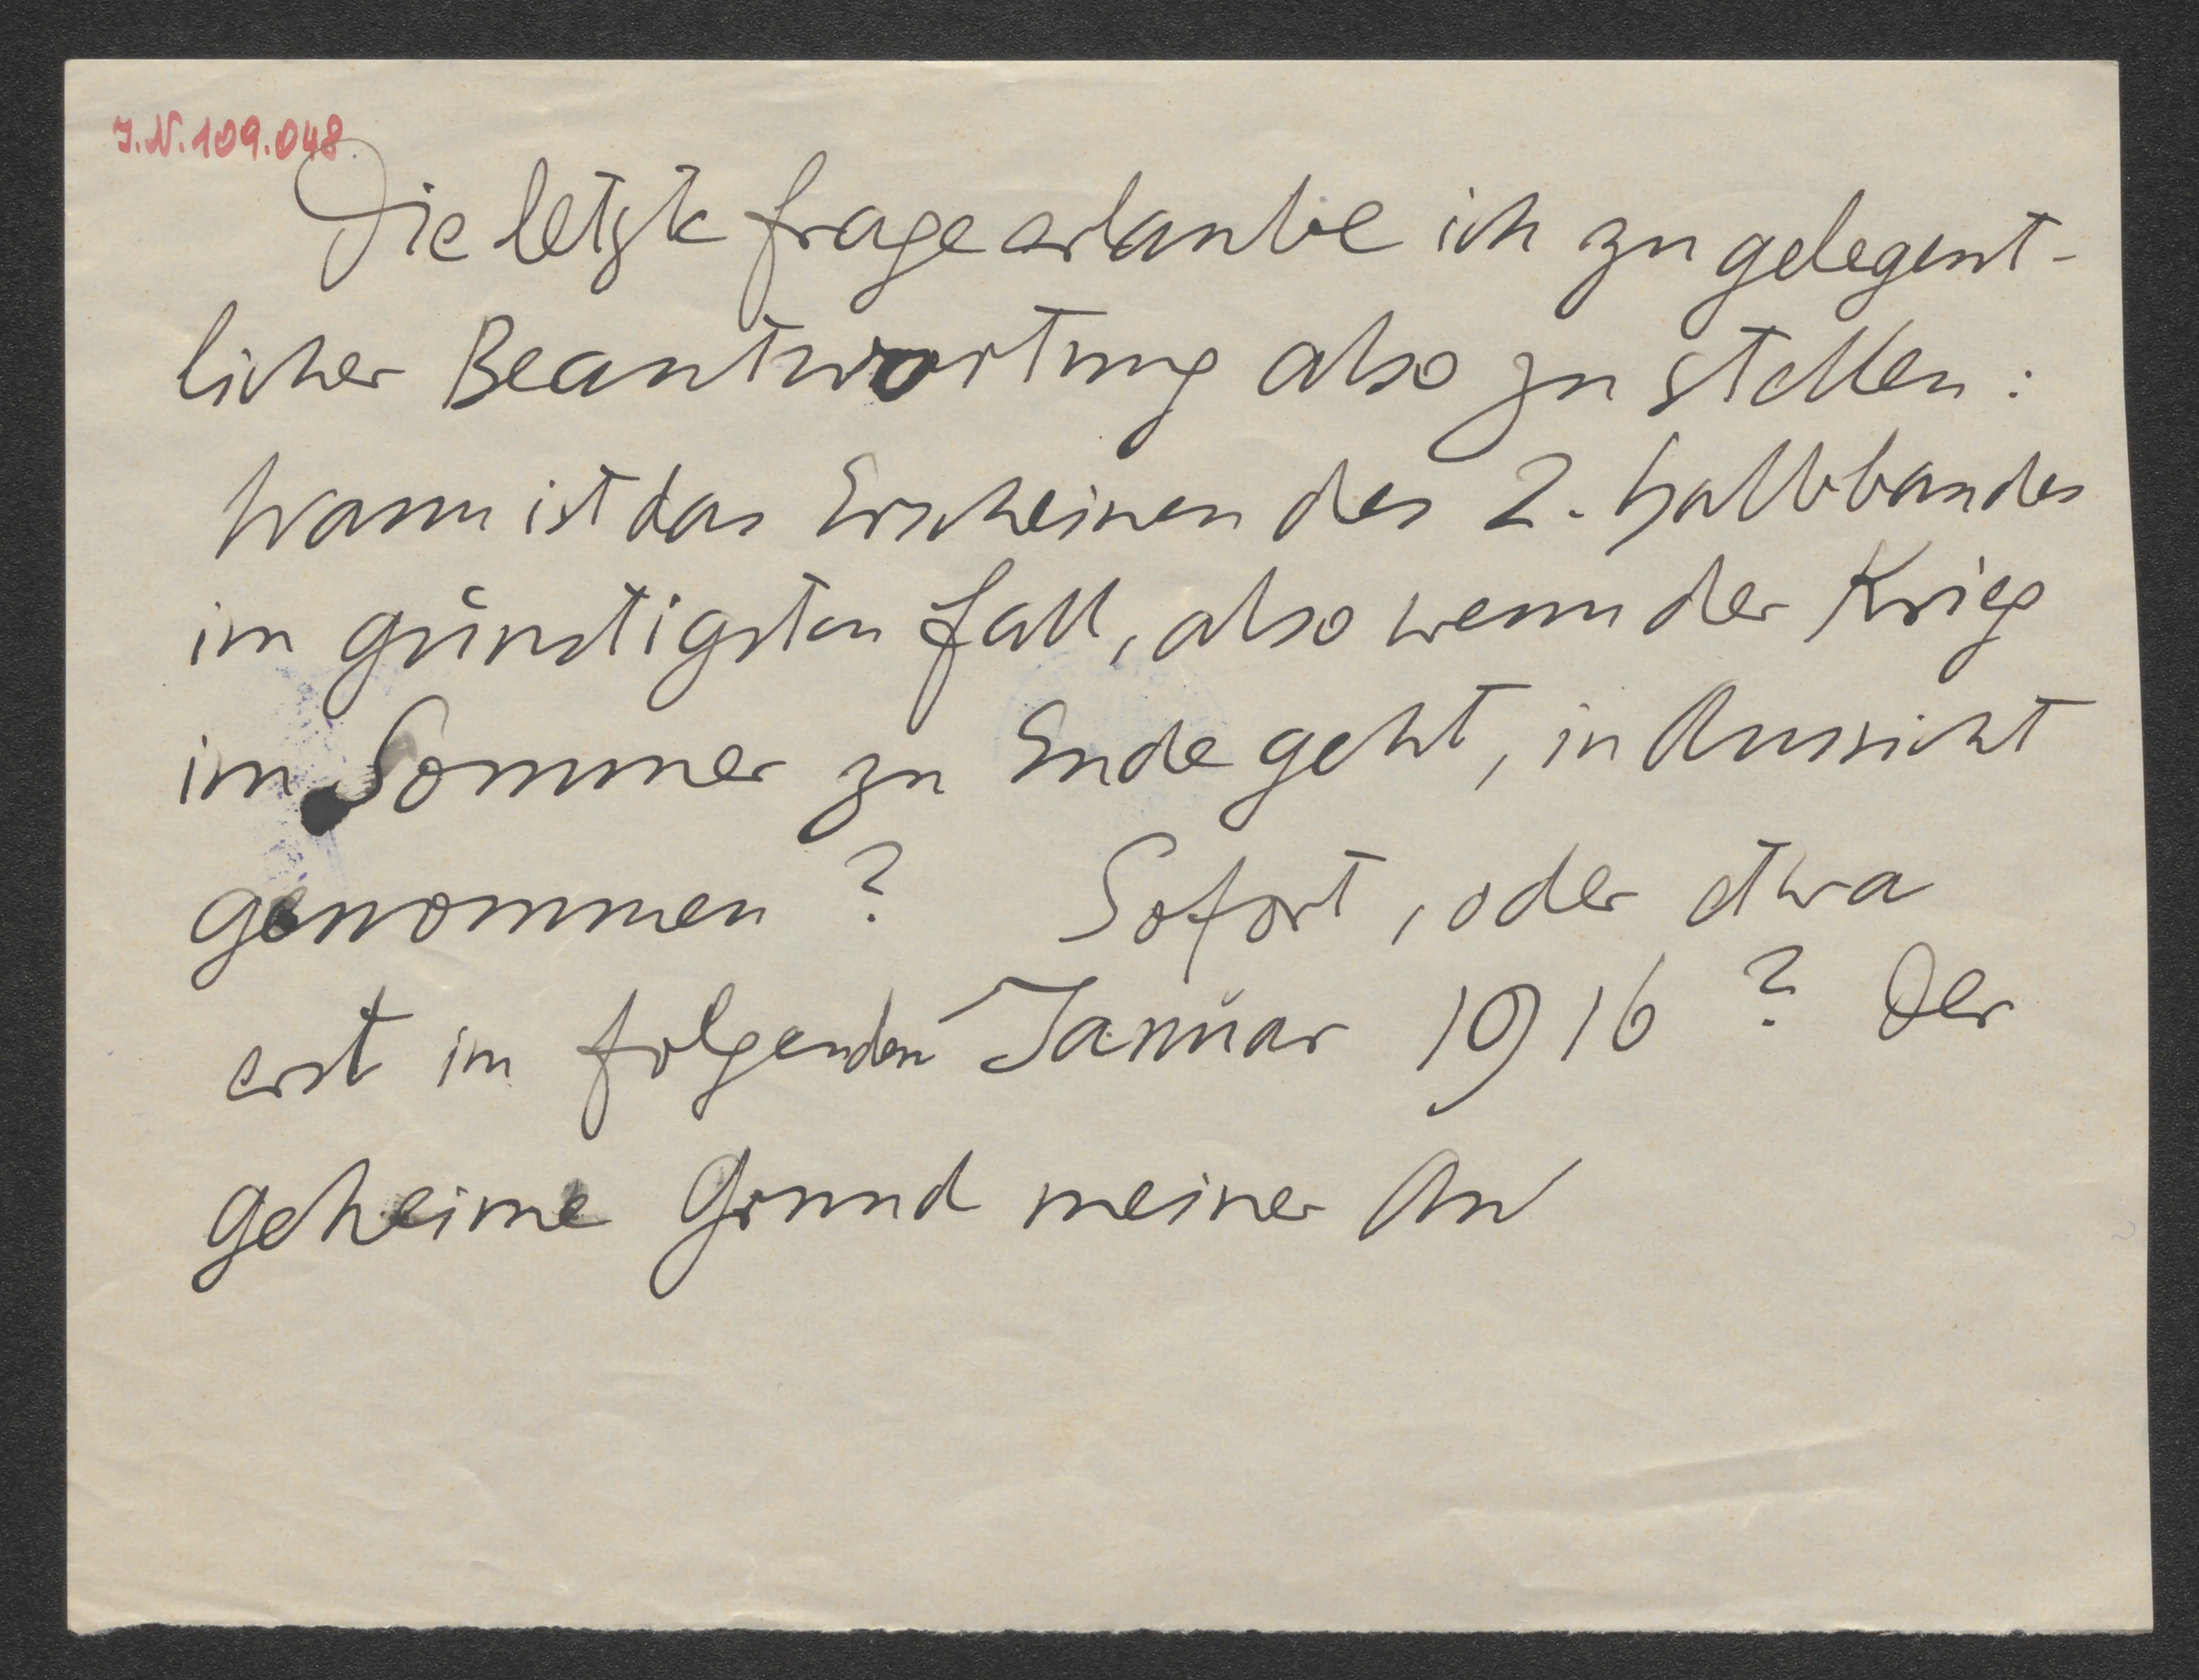 I.N.109.048
Die letzte Frage erlaube ich zu gelegent-
licher Beantwortung also zu stellen:
Wann ist das Erscheinen des 2. Halbbandes
im günstigsten Fall, also wenn der Krieg
im Sommer zu Ende geht, in Aussicht
genommen? Sofort, oder etwa
erst im folgenden Januar 1916? Der
geheime Grund meiner An